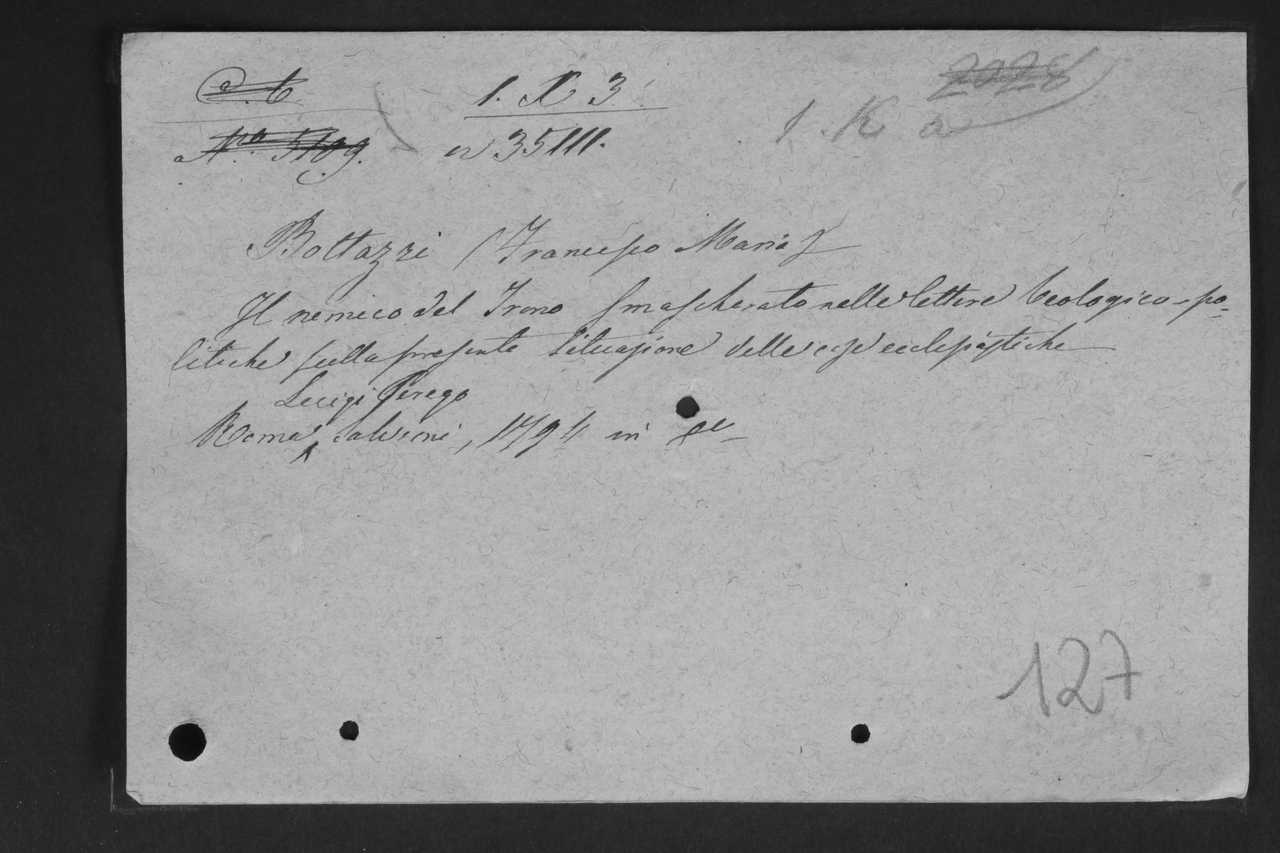 C. b
1. X 3
2028
N.º 5109.
n 35111.
1. K a
Bottazzi (Francesco Maria)
Il nemico del Trono smascherato nelle lettere teologico-po-
litiche sulla presente situazione delle cose ecclesiastiche
Luigi Perego
Roma, Salvioni, 1794 in 8º
127